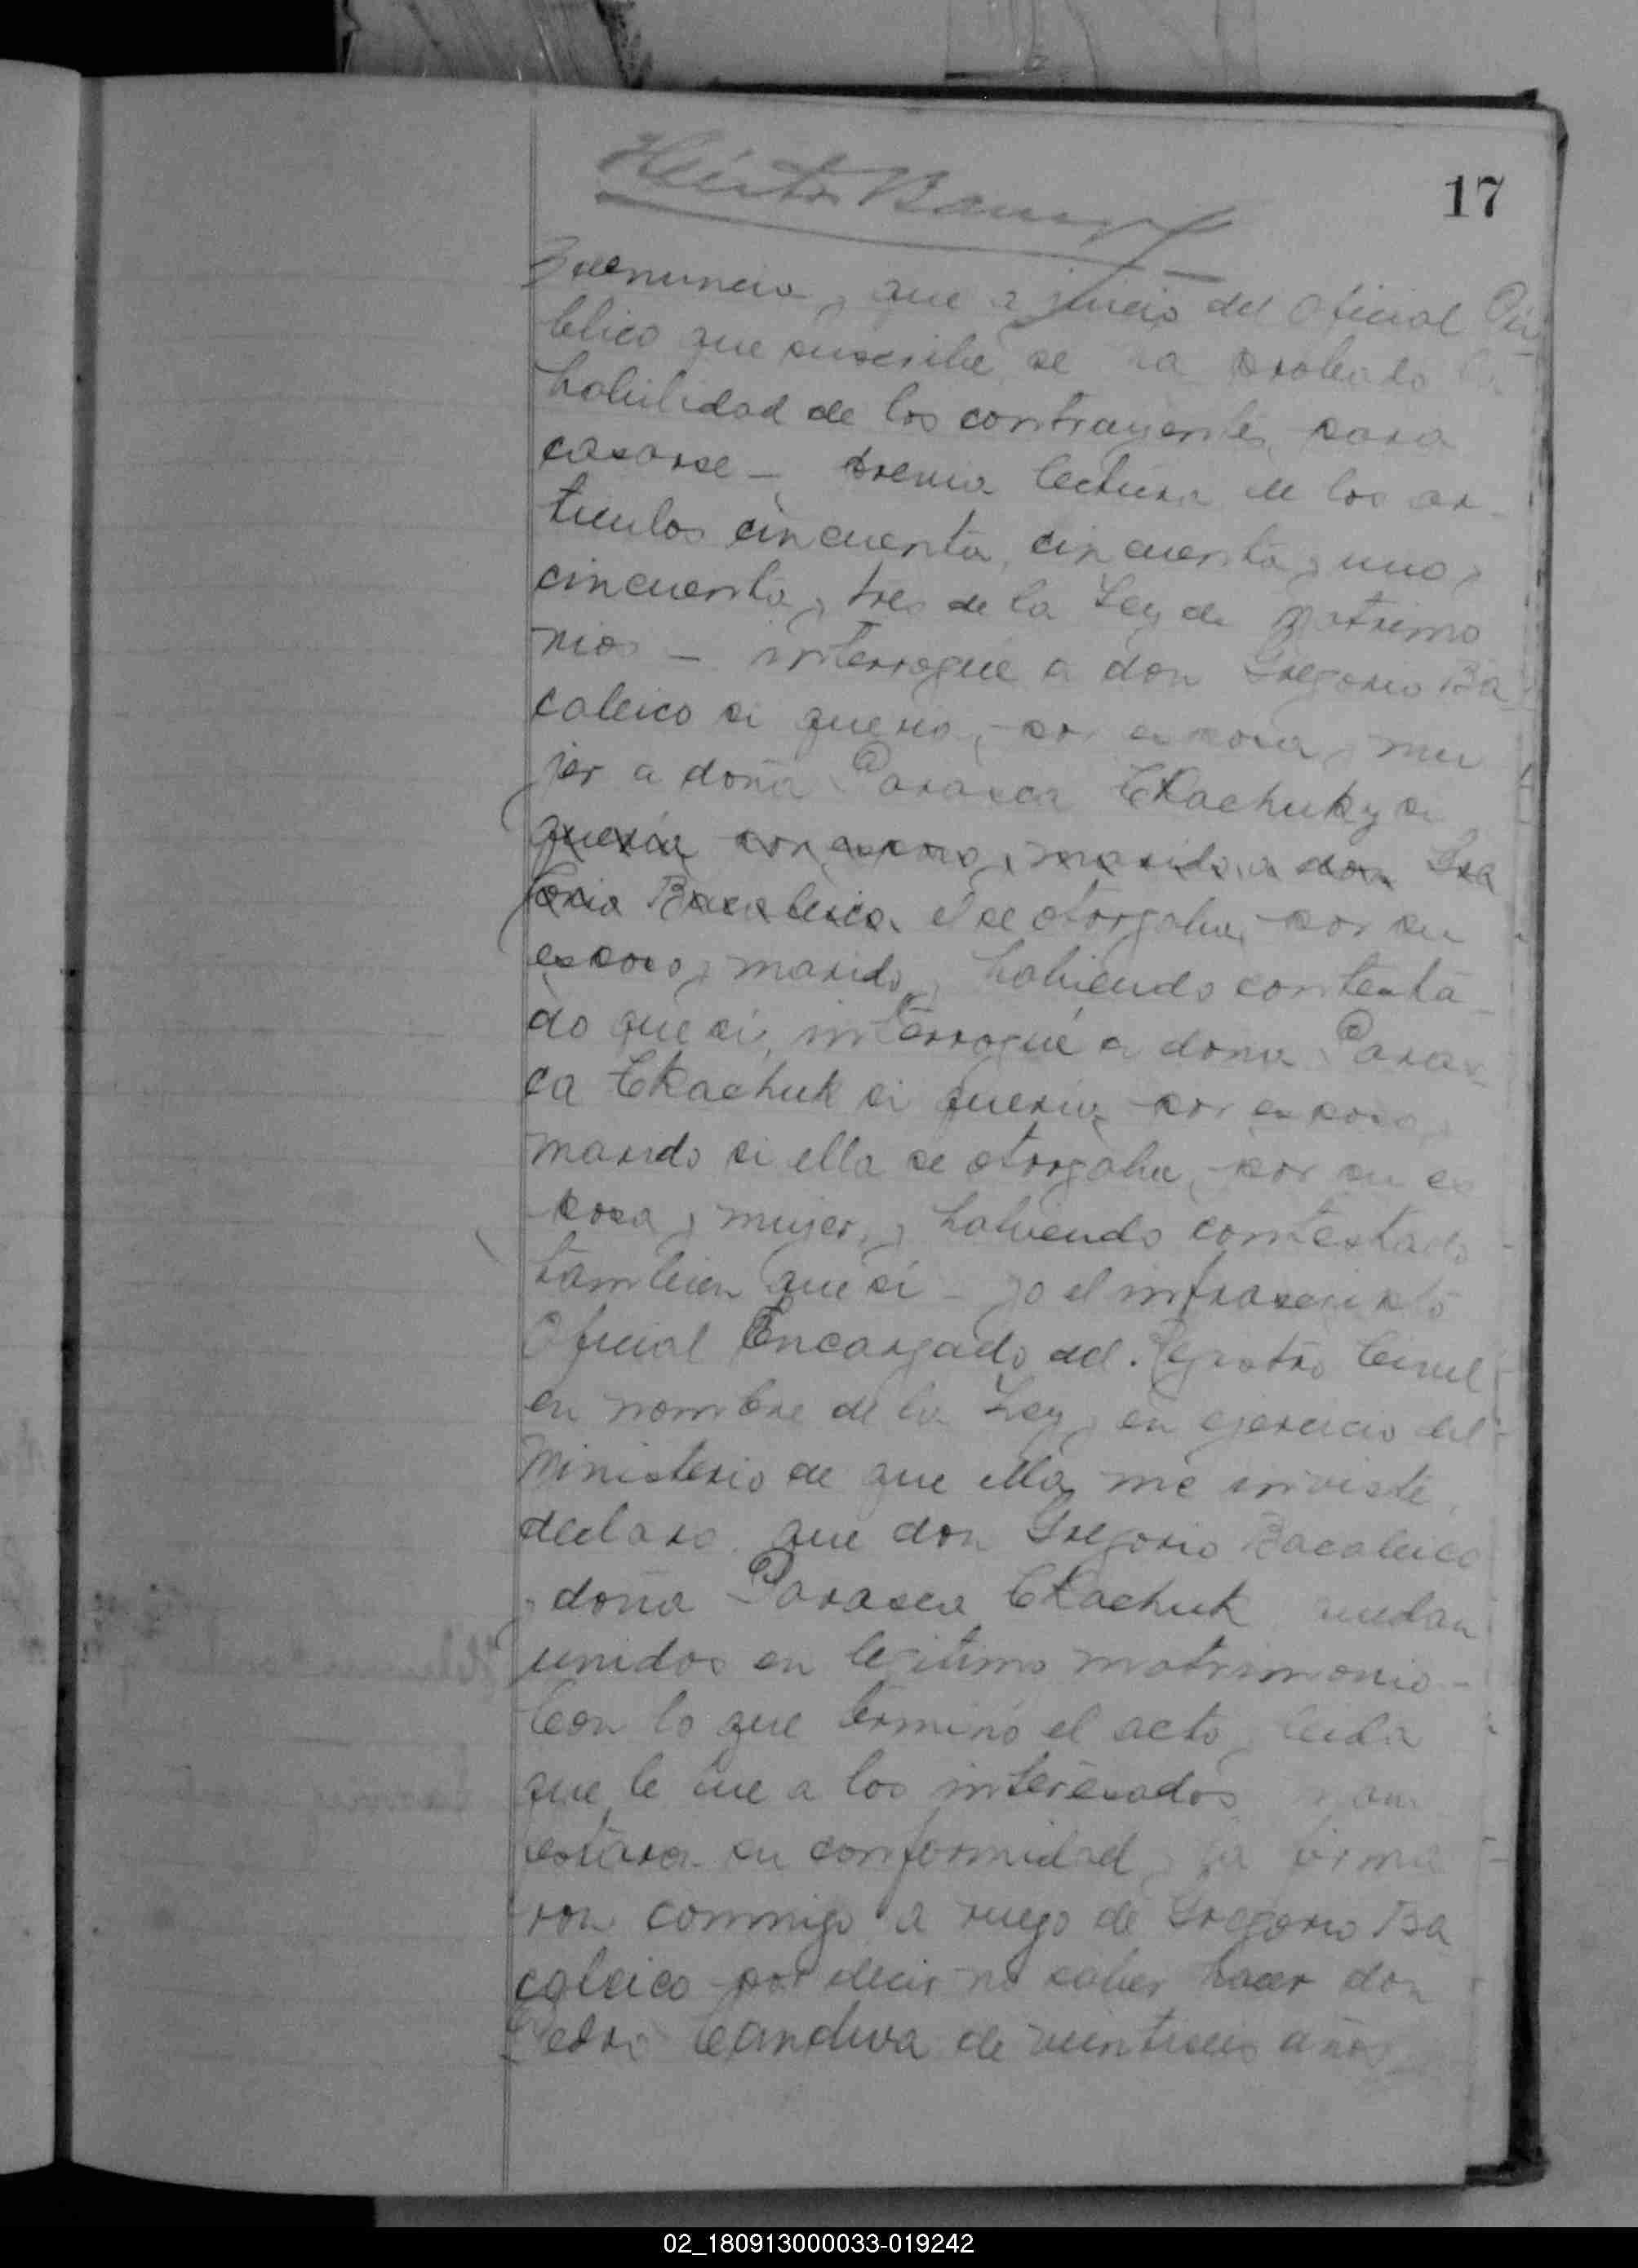 17
denuncia y que a juicio del Oficial Pú
blico que suscribe se ha probado la
habilidad de los contrayentes para
casarse – previa lectura de los ar-
tículos cincuenta, cincuenta y uno y
cincuenta y tres de la Ley de Matrimo
nios – interrogué a don Gregorio Ba
caleico si queria por esposa y mu
jer a doña Parasca Ckachuk y si
queria por esposo y marido a don Gre
gorio Bacaleico el se otorgaba por su
esposo y marido y habiendo contesta-
do que sí, interrogué a dona Paras-
ca Ckachuk si queria por esposo y
marido si ella se otorgaba por su es
posa y mujer, y habiendo contestado
tambien que sí – yo el infrascripto
Oficial Encargado del Registro Civil
en nombre de la Ley y en ejercicio del
Ministerio de que ella me inviste,
declaro que don Gregorio Bacaleico
y doña Parasca Ckachuk quedan
unidos en legitimo matrimonio –
Con lo que terminó el acto, leida
que le fue a los interesados mani
festaron su conformidad y la firma
ron conmigo a ruego de Gregorio Ba
caleico por decir no saber hacer don
Pedro Candiva de veintiseis años
02_180913000033-019242